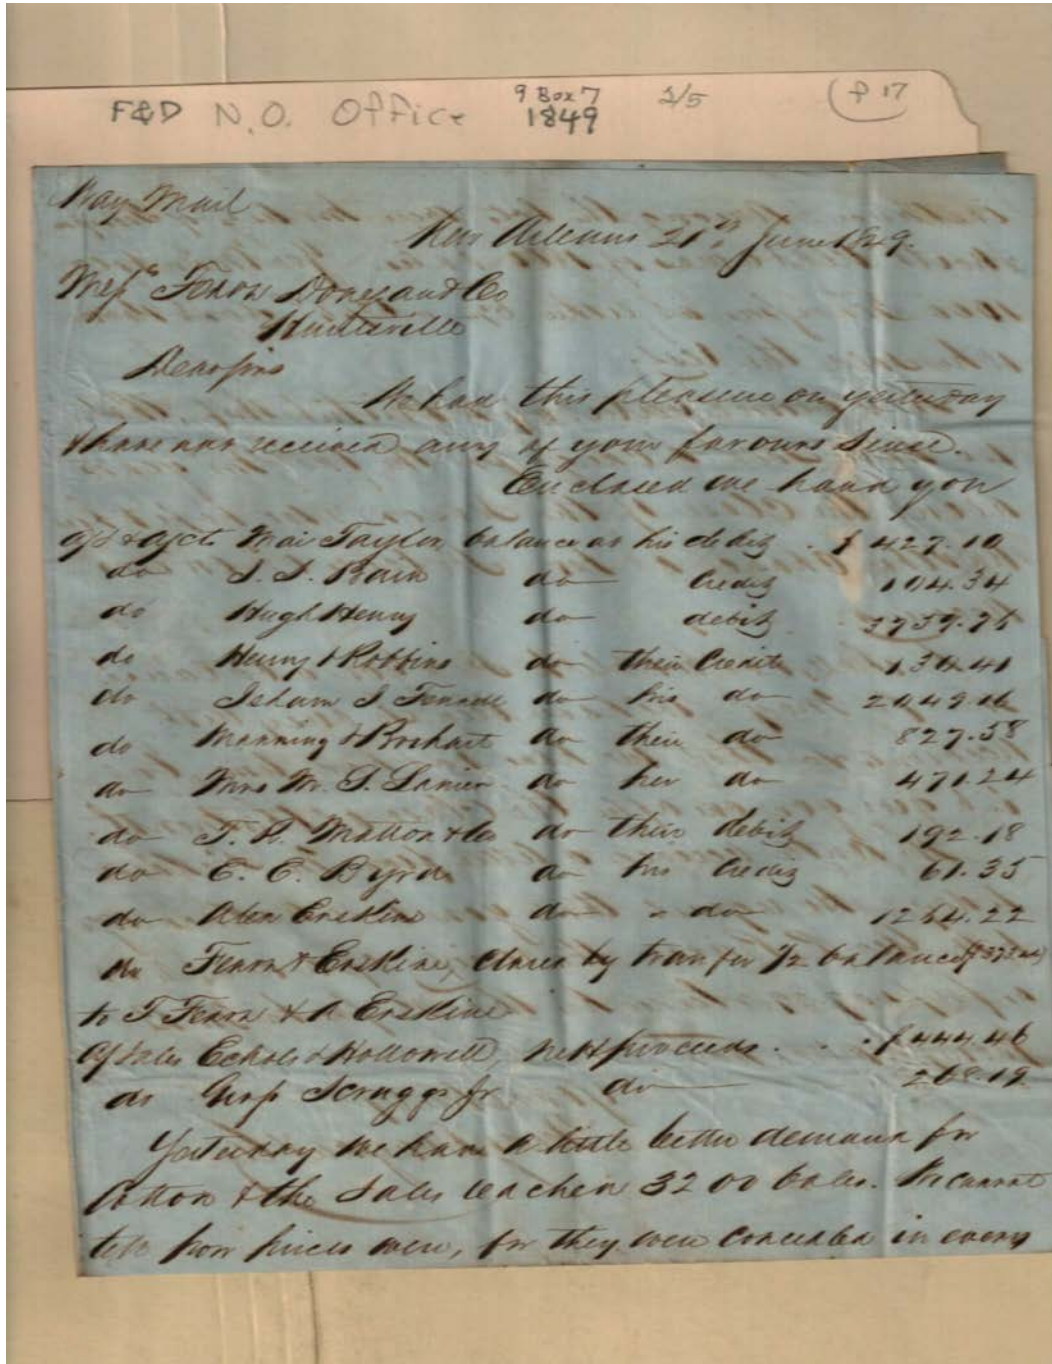 F&D N.O. Office 9 Box 7 1849 2/5 (P 17
Way Mail
New Orleans 21st June 1849.
Messrs Fearn Donegan & Co
Huntsville
Dear Sirs
We had this pleasure on yesterday
& have not received any of your favours since.
Enclosed we hand you
a/s & a/ct Wm Taylor balance at his debit . $ 427.10
do S. S. Bain do Credit 104.34
do Hugh Henry do debit 3939.75
do Henry & Robbins do their Credit
do Isham J. Fennell do his do 2049.16
do Manning & do their do 827.58
do Mrs M. S. Lanier do her do 471.24
do T. R. & Co do their debit 192.18
do E. C. Byrd do his Credit 61.35
do Alex Erskine do " do 1264.22
do Fearn & Erskine, closed by transfer 1/2 balance
to T Fearn & A Erskine
a/Sales Echols & Hollowell, nett proceeds . . . $444.46
do Scruggs Jr do 268.19
Yesterday we had a little better demand for
Cotton & the Sales reached 3200 bales. We cannot
tell how prices were, for they were concealed in every